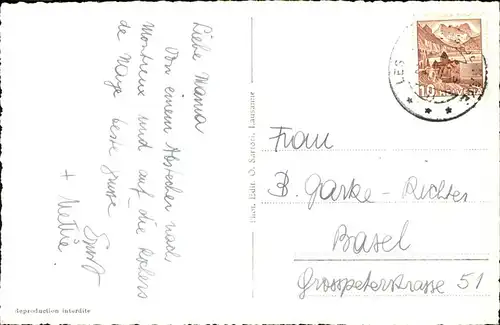 Liebe Mama
Von einem Abstecher nach
Montreux und auf die Rochers
de Naye beste Grüsse
Ernst
+ Methie
Phot. Edit. O. Sartori, Lausanne
Reproduction interdite
LES
10
HELVETIA
Frau
B. Garke-Richter
Basel
Grosspeterstrasse 51